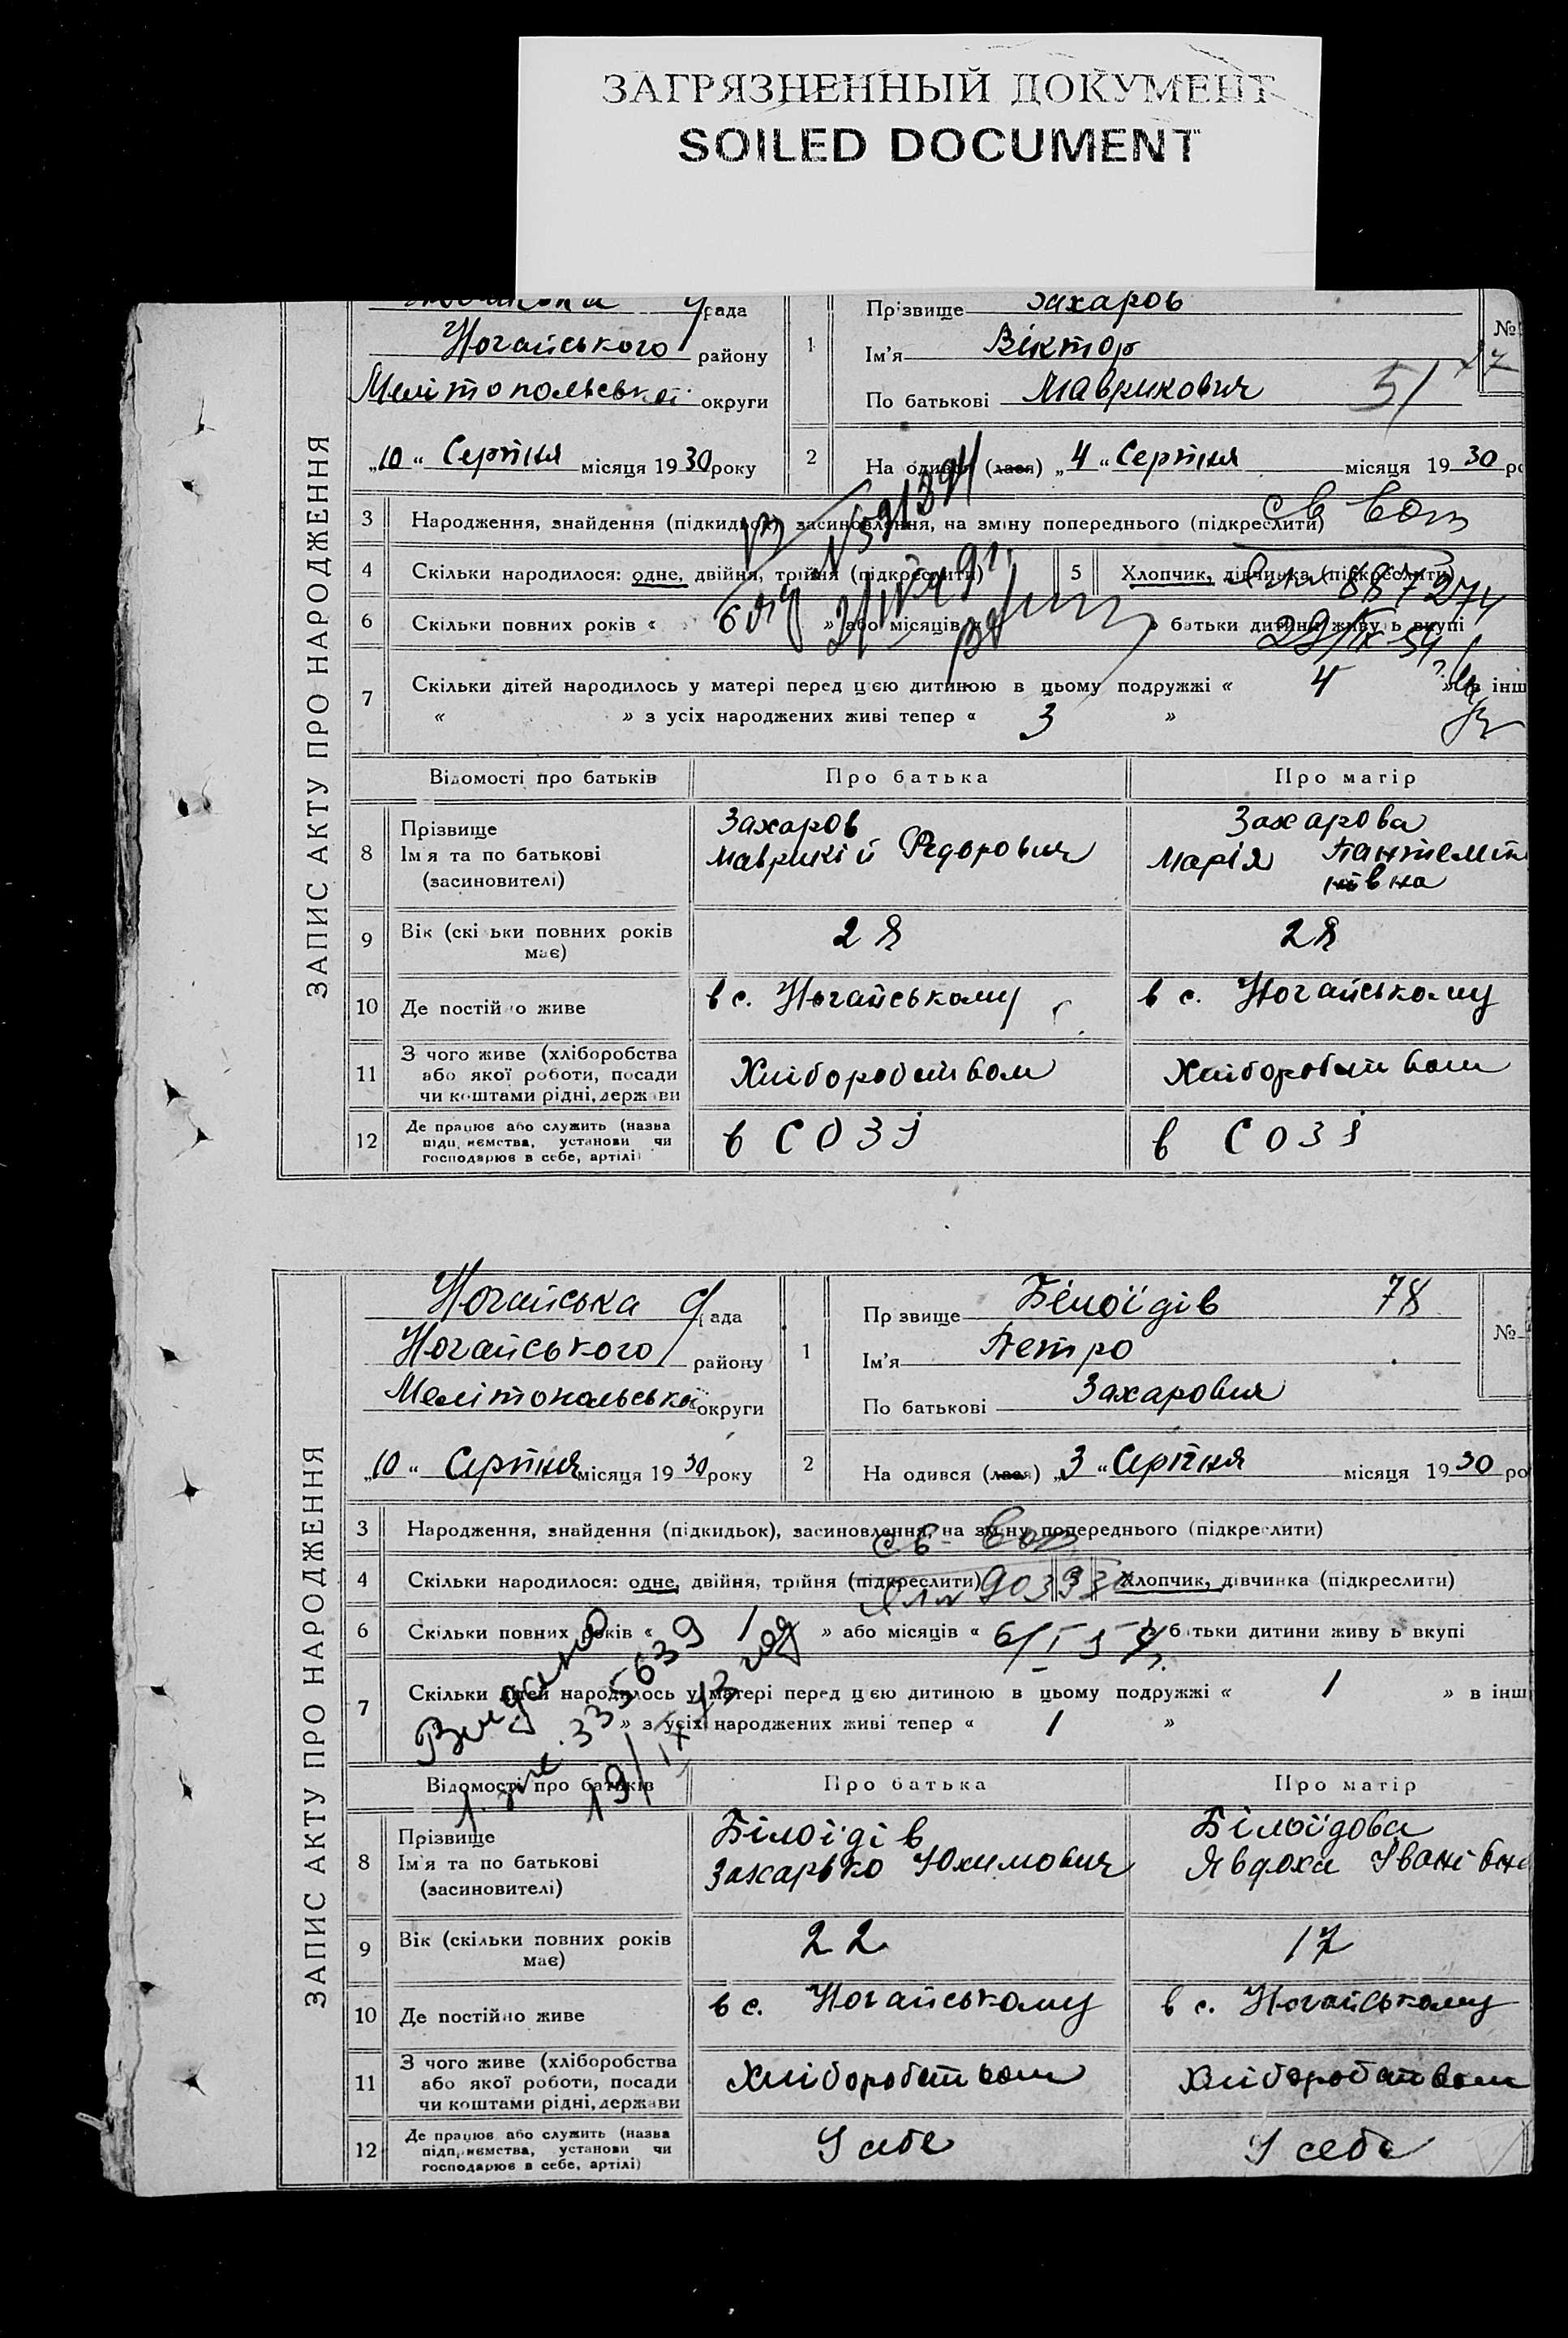 ЗАГРЯЗНЕННЫЙ ДОКУМЕНТ
SOILED DOCUMENT
ЗАПИС АКТУ ПРО НАРОДЖЕННЯ
рада
Ногайського району
Мелітопольської округи
„10“ Серпня місяця 1930 року
1
Прізвище Захаров
Ім'я Віктор
По батькові Маврикович 51
№
2 На одився (лася) „4“ Серпня місяця 1930 ро
3 Народження, знайдення (підкидьок), засиновлення, на зміну попереднього (підкреслити)
4 Скільки народилося: одне, двійня, трійня (підкреслити) 5 Хлопчик, дівчинка (підкреслити)
887274
6 Скільки повних років « 6 » або місяців « » батьки дитини живу ь вкупі
7 Скільки дітей народилось у матері перед цією дитиною в цьому подружжі « 4 » в інш
« » з усіх народжених живі тепер « 3 »
Відомості про батьків Про батька Про матір
8 Прізвище Захаров Захарова
Ім'я та по батькові Маврикій Федорович Марія
(засновителі)
9 Вік (скі ьки повних років має) 28 28
10 Де постійно живе в с. Ногайському в с. Ногайському
11 З чого живе (хліборобства або якої роботи, посади чи коштами рідні, держави Хліборобством Хліборобством
12 Де працює або служить (назва підприємства, установи чи господарює в себе, артілі) в СОЗі в СОЗі
ЗАПИС АКТУ ПРО НАРОДЖЕННЯ
Ногайська рада
Ногайського району
Мелітопольської округи
„10“ Серпня місяця 1930 року
1
Пр звище Білоїдів 78
Ім'я Петро
По батькові Захарович
№
2 На одився (лася) „3“ Серпня місяця 1930 ро
3 Народження, знайдення (підкидьок), засиновлення, на зміну попереднього (підкреслити)
4 Скільки народилося: одне, двійня, трійня (підкреслити) Хлопчик, дівчинка (підкреслити)
6 Скільки повних років « 1 » або місяців « » батьки дитини живу ь вкупі
7 Скільки дітей народилось у матері перед цією дитиною в цьому подружжі « 1 » в інш
» з усіх народжених живі тепер « 1 »
335639
Відомості про батьків Про батька Про матір
8 Прізвище Білоїдів Білоїдова
Ім'я та по батькові Захарько Юхимович Явдоха Іванівна
(засиновителі)
9 Вік (скільки повних років має) 22 17
10 Де постійно живе в с. Ногайському в с. Ногайському
11 З чого живе (хліборобства або якої роботи, посади чи коштами рідні, держави Хліборобством Хліборобством
12 Де працює або служить (назва підприємства, установи чи господарює в себе, артілі) У себе У себе